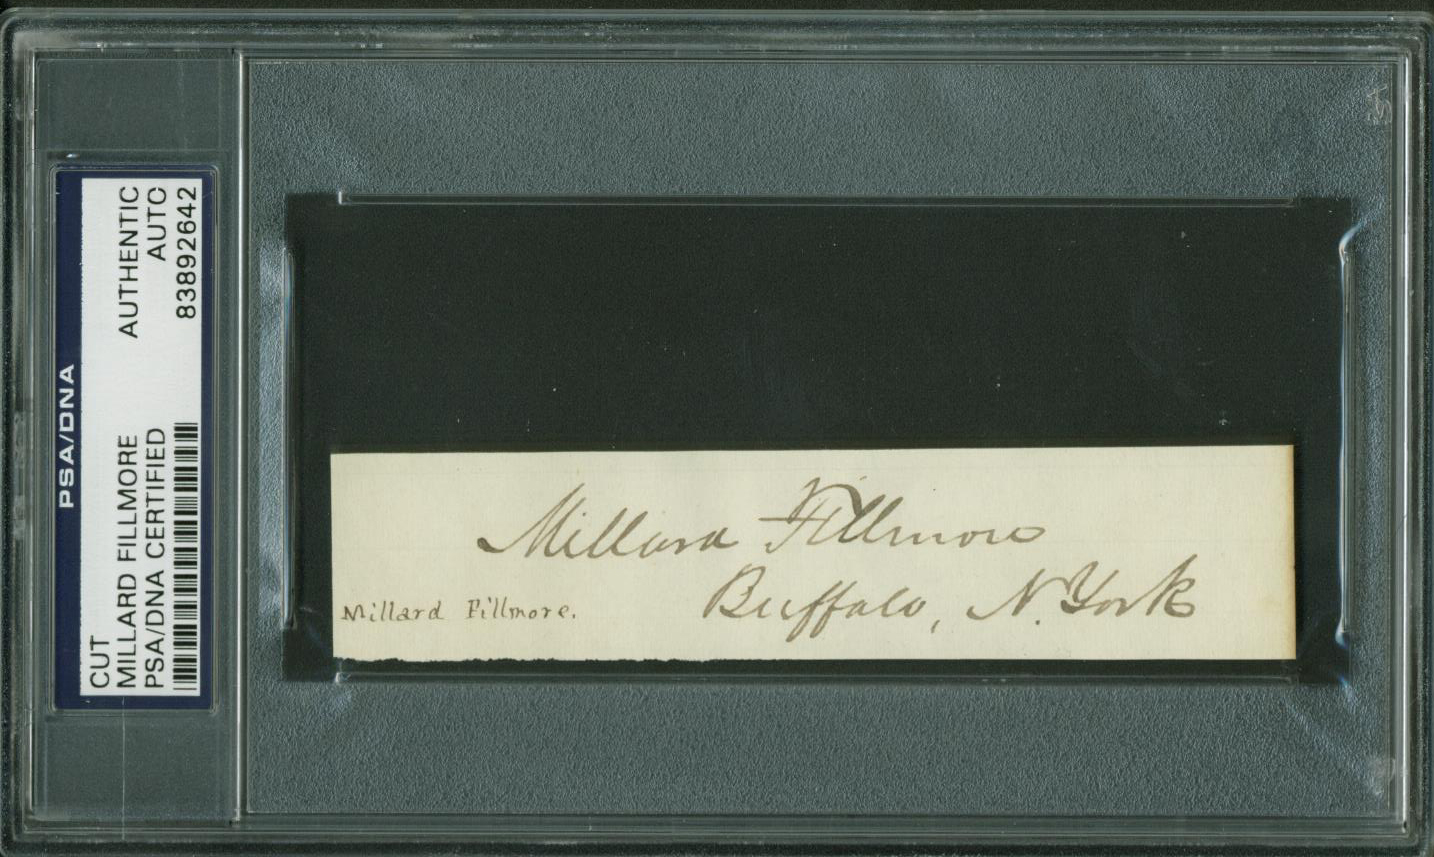 PSA/DNA
CUT
MILLARD FILLMORE AUTHENTIC
PSA/DNA CERTIFIED AUTO
83892642
Millard Fillmore
Buffalo, N. York
Millard Fillmore.